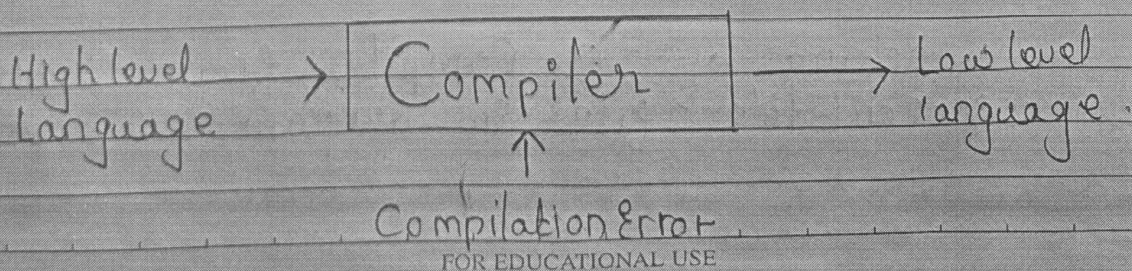 High level
Language
Compiler
Low level
language.
Compilation Error
FOR EDUCATIONAL USE